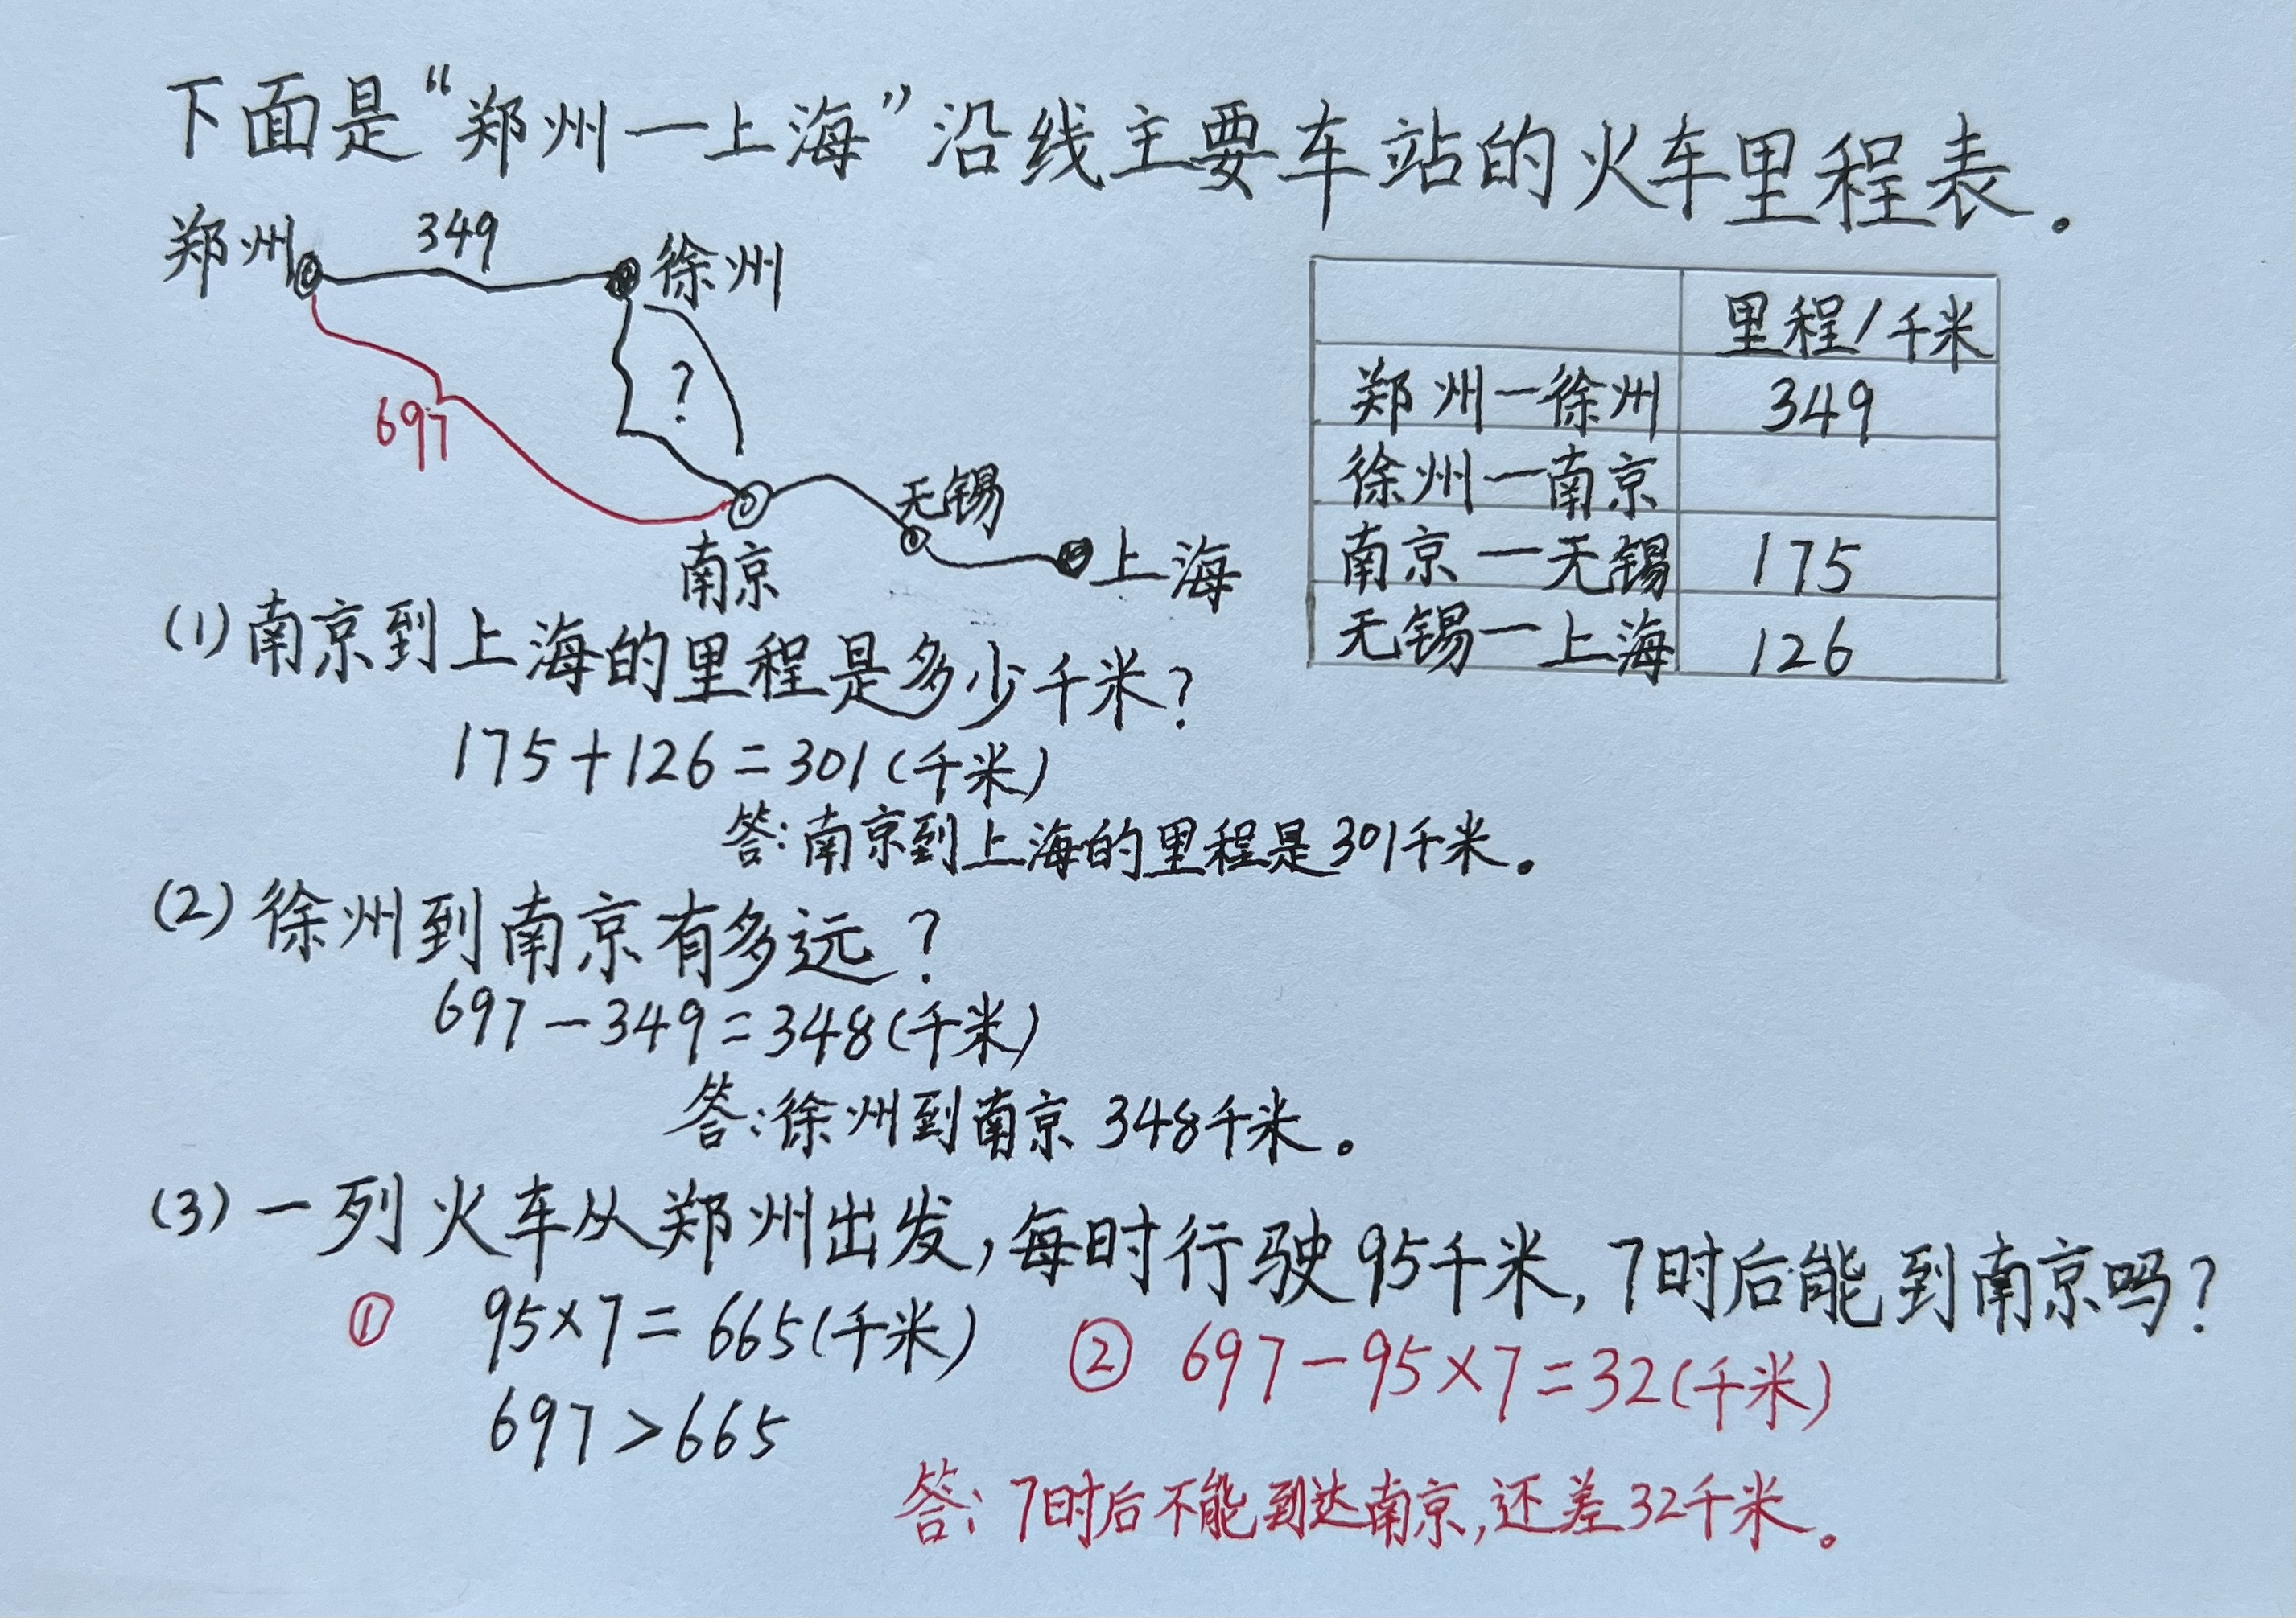 下面是“郑州—上海”沿线主要车站的火车里程表。
郑州 349 徐州
?
697
无锡
上海
南京
里程/千米
郑州—徐州 349
徐州—南京
南京—无锡 175
无锡—上海 126
(1)南京到上海的里程是多少千米?
175+126=301(千米)
答:南京到上海的里程是301千米。
(2)徐州到南京有多远?
697-349=348(千米)
答:徐州到南京348千米。
(3)一列火车从郑州出发,每时行驶95千米,7时后能到南京吗?
① 95×7=665(千米)
697>665
② 697-95×7=32(千米)
答:7时后不能到达南京,还差32千米。